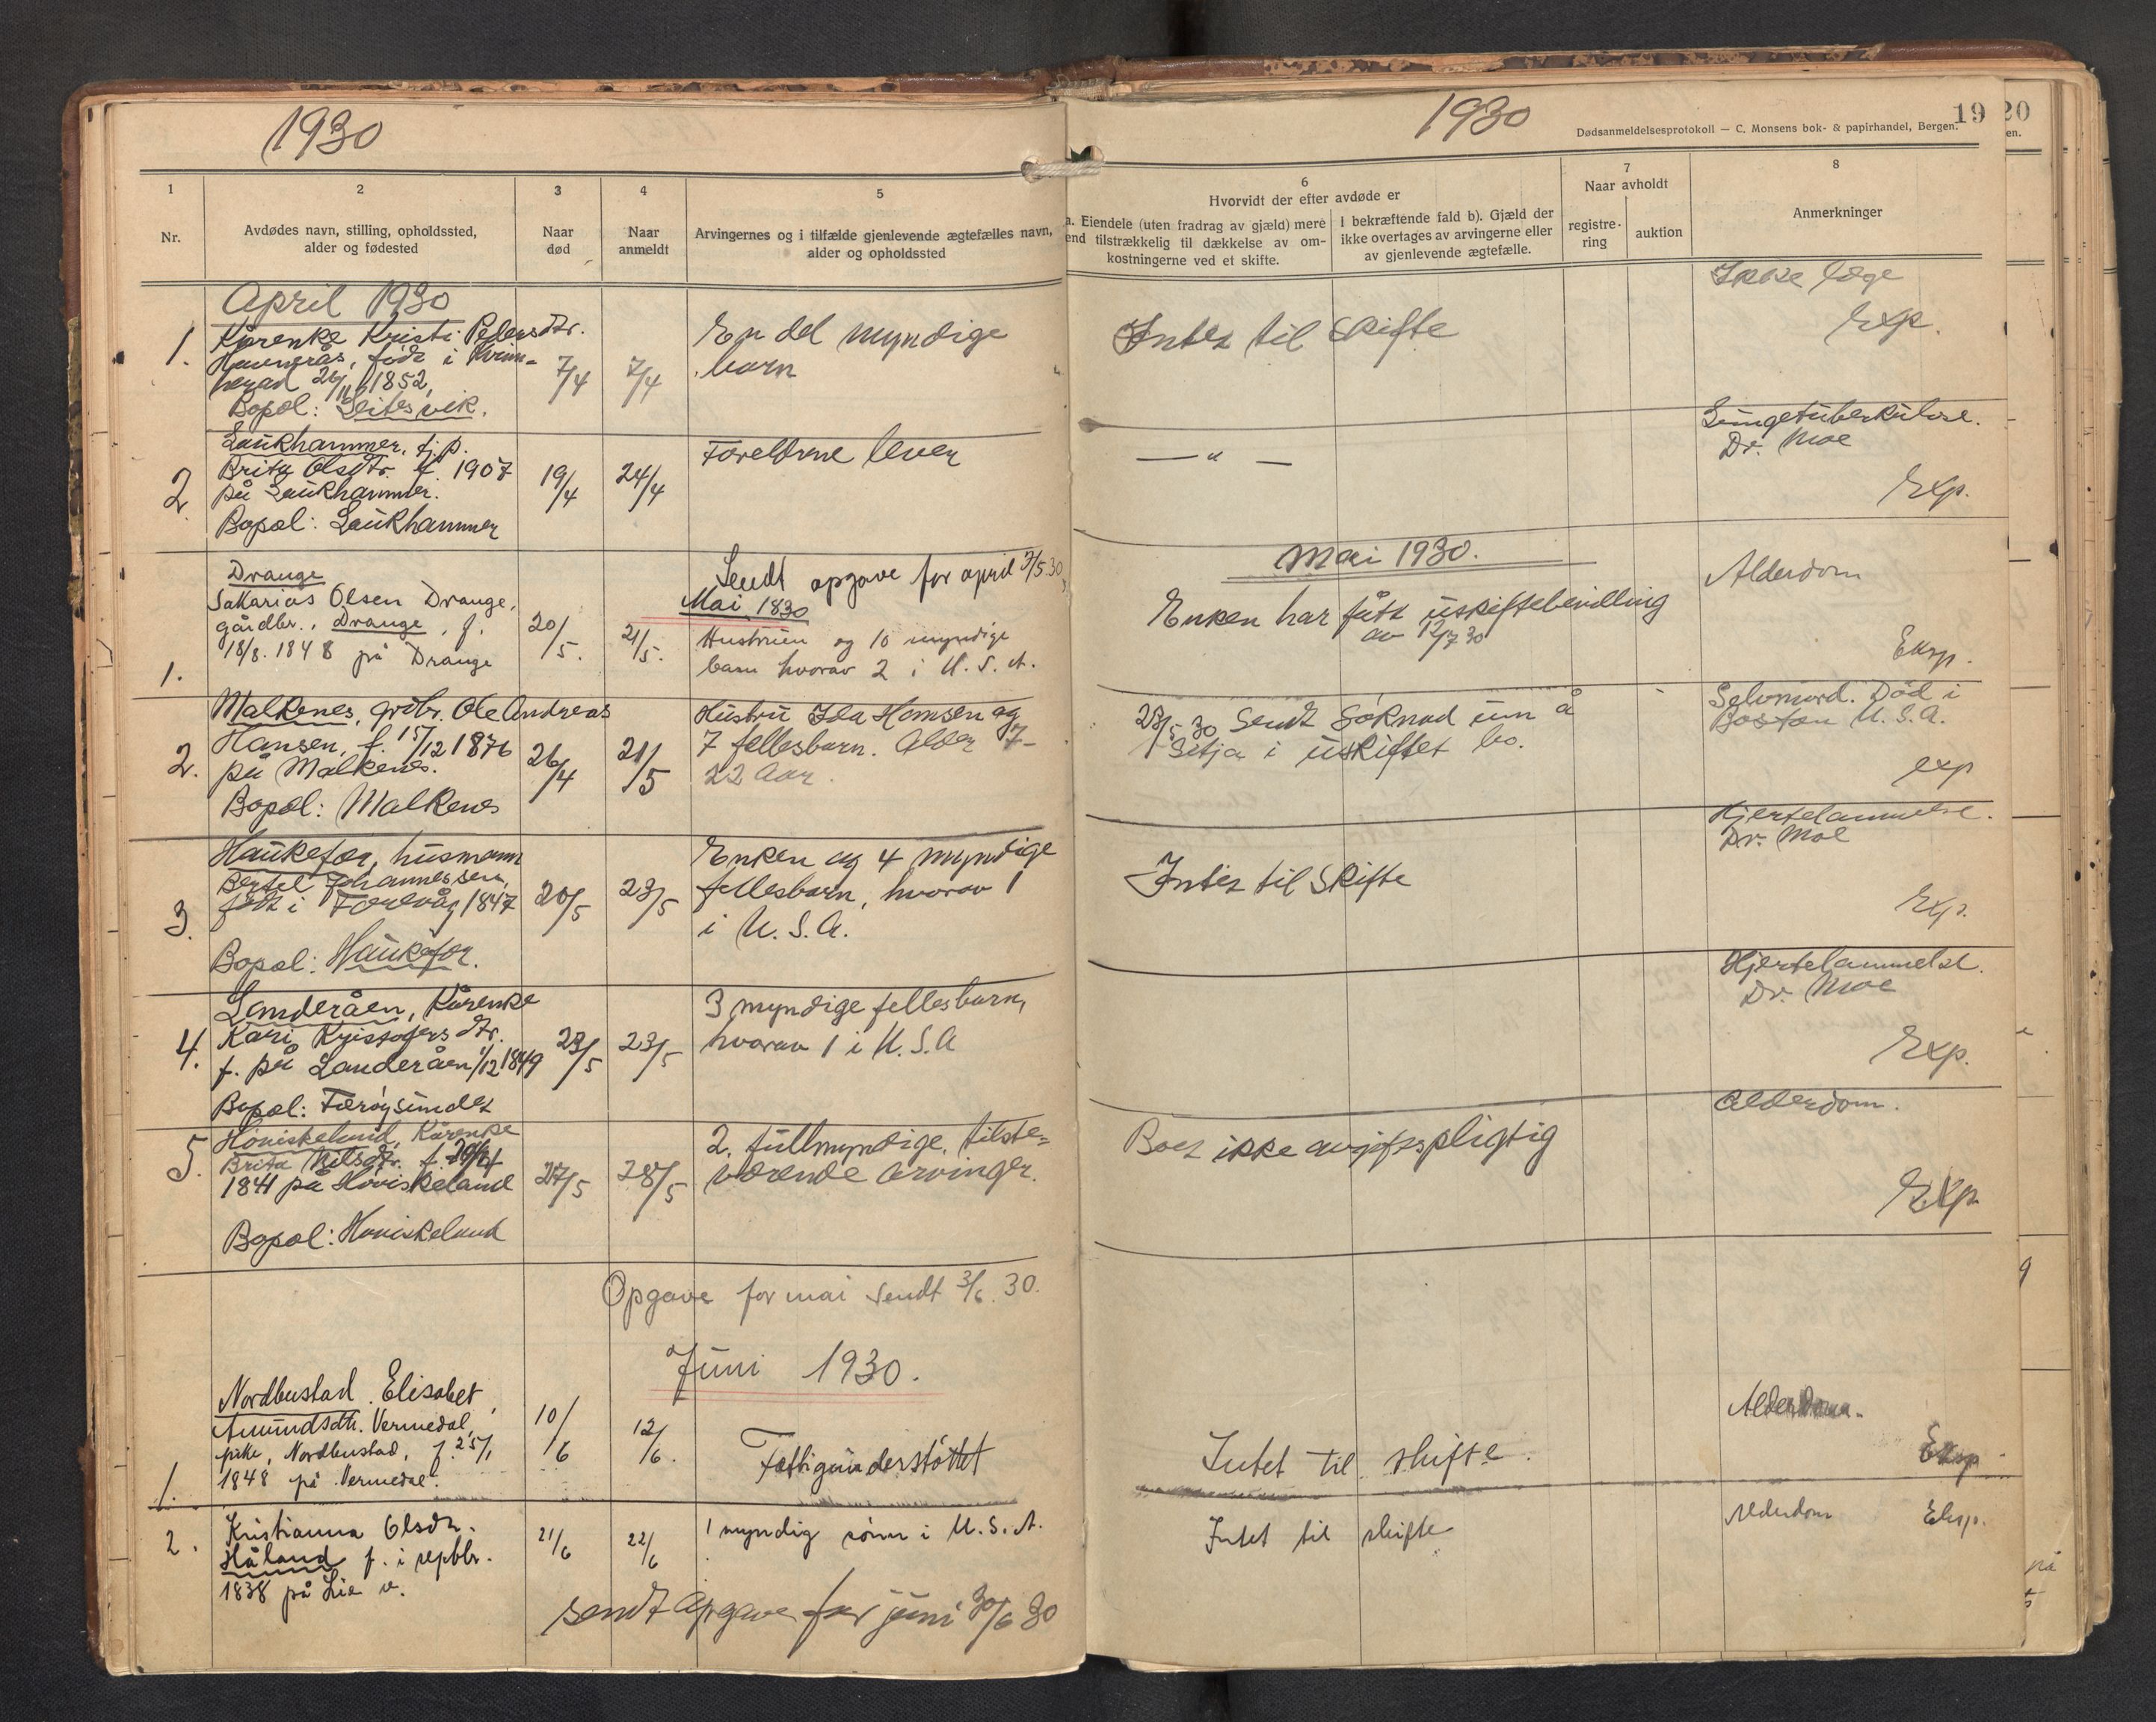 1930
1
2
3
4
5
Nr.
Avdødes navn, stilling, opholdssted,
alder og fødested
Naar
død
Naar
anmeldt
Arvingernes og i tilfælde gjenlevende ægtefælles navn,
alder og opholdssted
April 1930
1.
Kårenke Kristi Pedersdtr.
født i Kvinn-
herad 26/11 1852,
Bopæl: Leitesvik.
7/4
7/4
En del myndige
barn
2.
Laukhammer, tj.p.
Brita Olsdtr. f. 1907
på Laukhammer.
Bopæl: Laukhammer
19/4
24/4
Foreldrene lever
Sendt opgave for april 3/5 30
Mai 1830
1.
Drange
Sakarias Olsen Drange,
gårdbr., Drange, f.
18/8. 1848 på Drange
20/5.
21/5.
Hustruen og 10 myndige
barn hvorav 2 i U.S.A.
2.
Malkenes, grdbr. Ole Andreas
Hansen, f. 15/12 1876
på Malkenes.
Bopæl: Malkenes
26/4
21/5
Hustru Ida Hansen og
7 fellesbarn. Alder 7-
22 Aar.
3.
Haukefær, husmann
Bertel Johannessen,
født i Færevåg 1847
Bopæl: Haukefær.
20/5
23/5
Enken og 4 myndige
fellesbarn, hvorav 1
i U.S.A.
4.
Landeråen, Kårenke
Kari Kristofersdtr.
f. på Landeråen 1/12 1849
Bopæl: Færøysundet
23/5
23/5
3 myndige fellesbarn,
hvorav 1 i U.S.A
5.
Hoviskeland, Kårenke
Brita Nilsdtr. f.
1841 på Hoviskeland
Bopæl: Hoviskeland
27/5
28/5
2. fullmyndige, tilste=
værende arvinger.
Opgave for mai sendt 3/6. 30.
Juni 1930.
1.
Nordbustad, Elisabet
Amundsdtr. Vermedal,
pike, Nordbustad, f. 25/1
1848 på Vermedal.
10/6
12/6.
Fattigunderstøttet
2.
Kristianna Olsdtr.
Håland f. i septbr.
1838 på Lie v.
21/6
22/6
1 myndig sønn i U.S.A.
sendt Opgave for juni 30/6 30
1930
Dødsanmeldelsesprotokoll — C. Monsens bok- & papirhandel, Bergen.
19
20
en.
6
Hvorvidt der efter avdøde er
a. Eiendele (uten fradrag av gjæld) mere
end tilstrækkelig til dækkelse av om-
kostningerne ved et skifte.
I bekræftende fald b). Gjæld der
ikke overtages av arvingerne eller
av gjenlevende ægtefælle.
7
Naar avholdt
registre-
ring
auktion
8
Anmerkninger
Intet til Skifte
Ikke læge
Exp.
— " —
Lungetuberkulose.
Dr. Moe
Exp.
Mai 1930.
Enken har fått uskiftebevilling
av 12/7 30
Alderdom
Eksp.
28/5 30 Sendt Søknad um å
Sitja i uskiftet bo.
Selvmord. Død i
Boston U.S.A.
exp
Intet til Skifte
Hjertelammelse.
Dr. Moe
Exp.
Hjertelammelse.
Dr. Moe
Exp.
Boet ikke avgiftspligtig
Alderdom.
Exp.
Intet til skifte.
Alderdom.
Eksp.
Intet til skifte
Alderdom
Eksp.